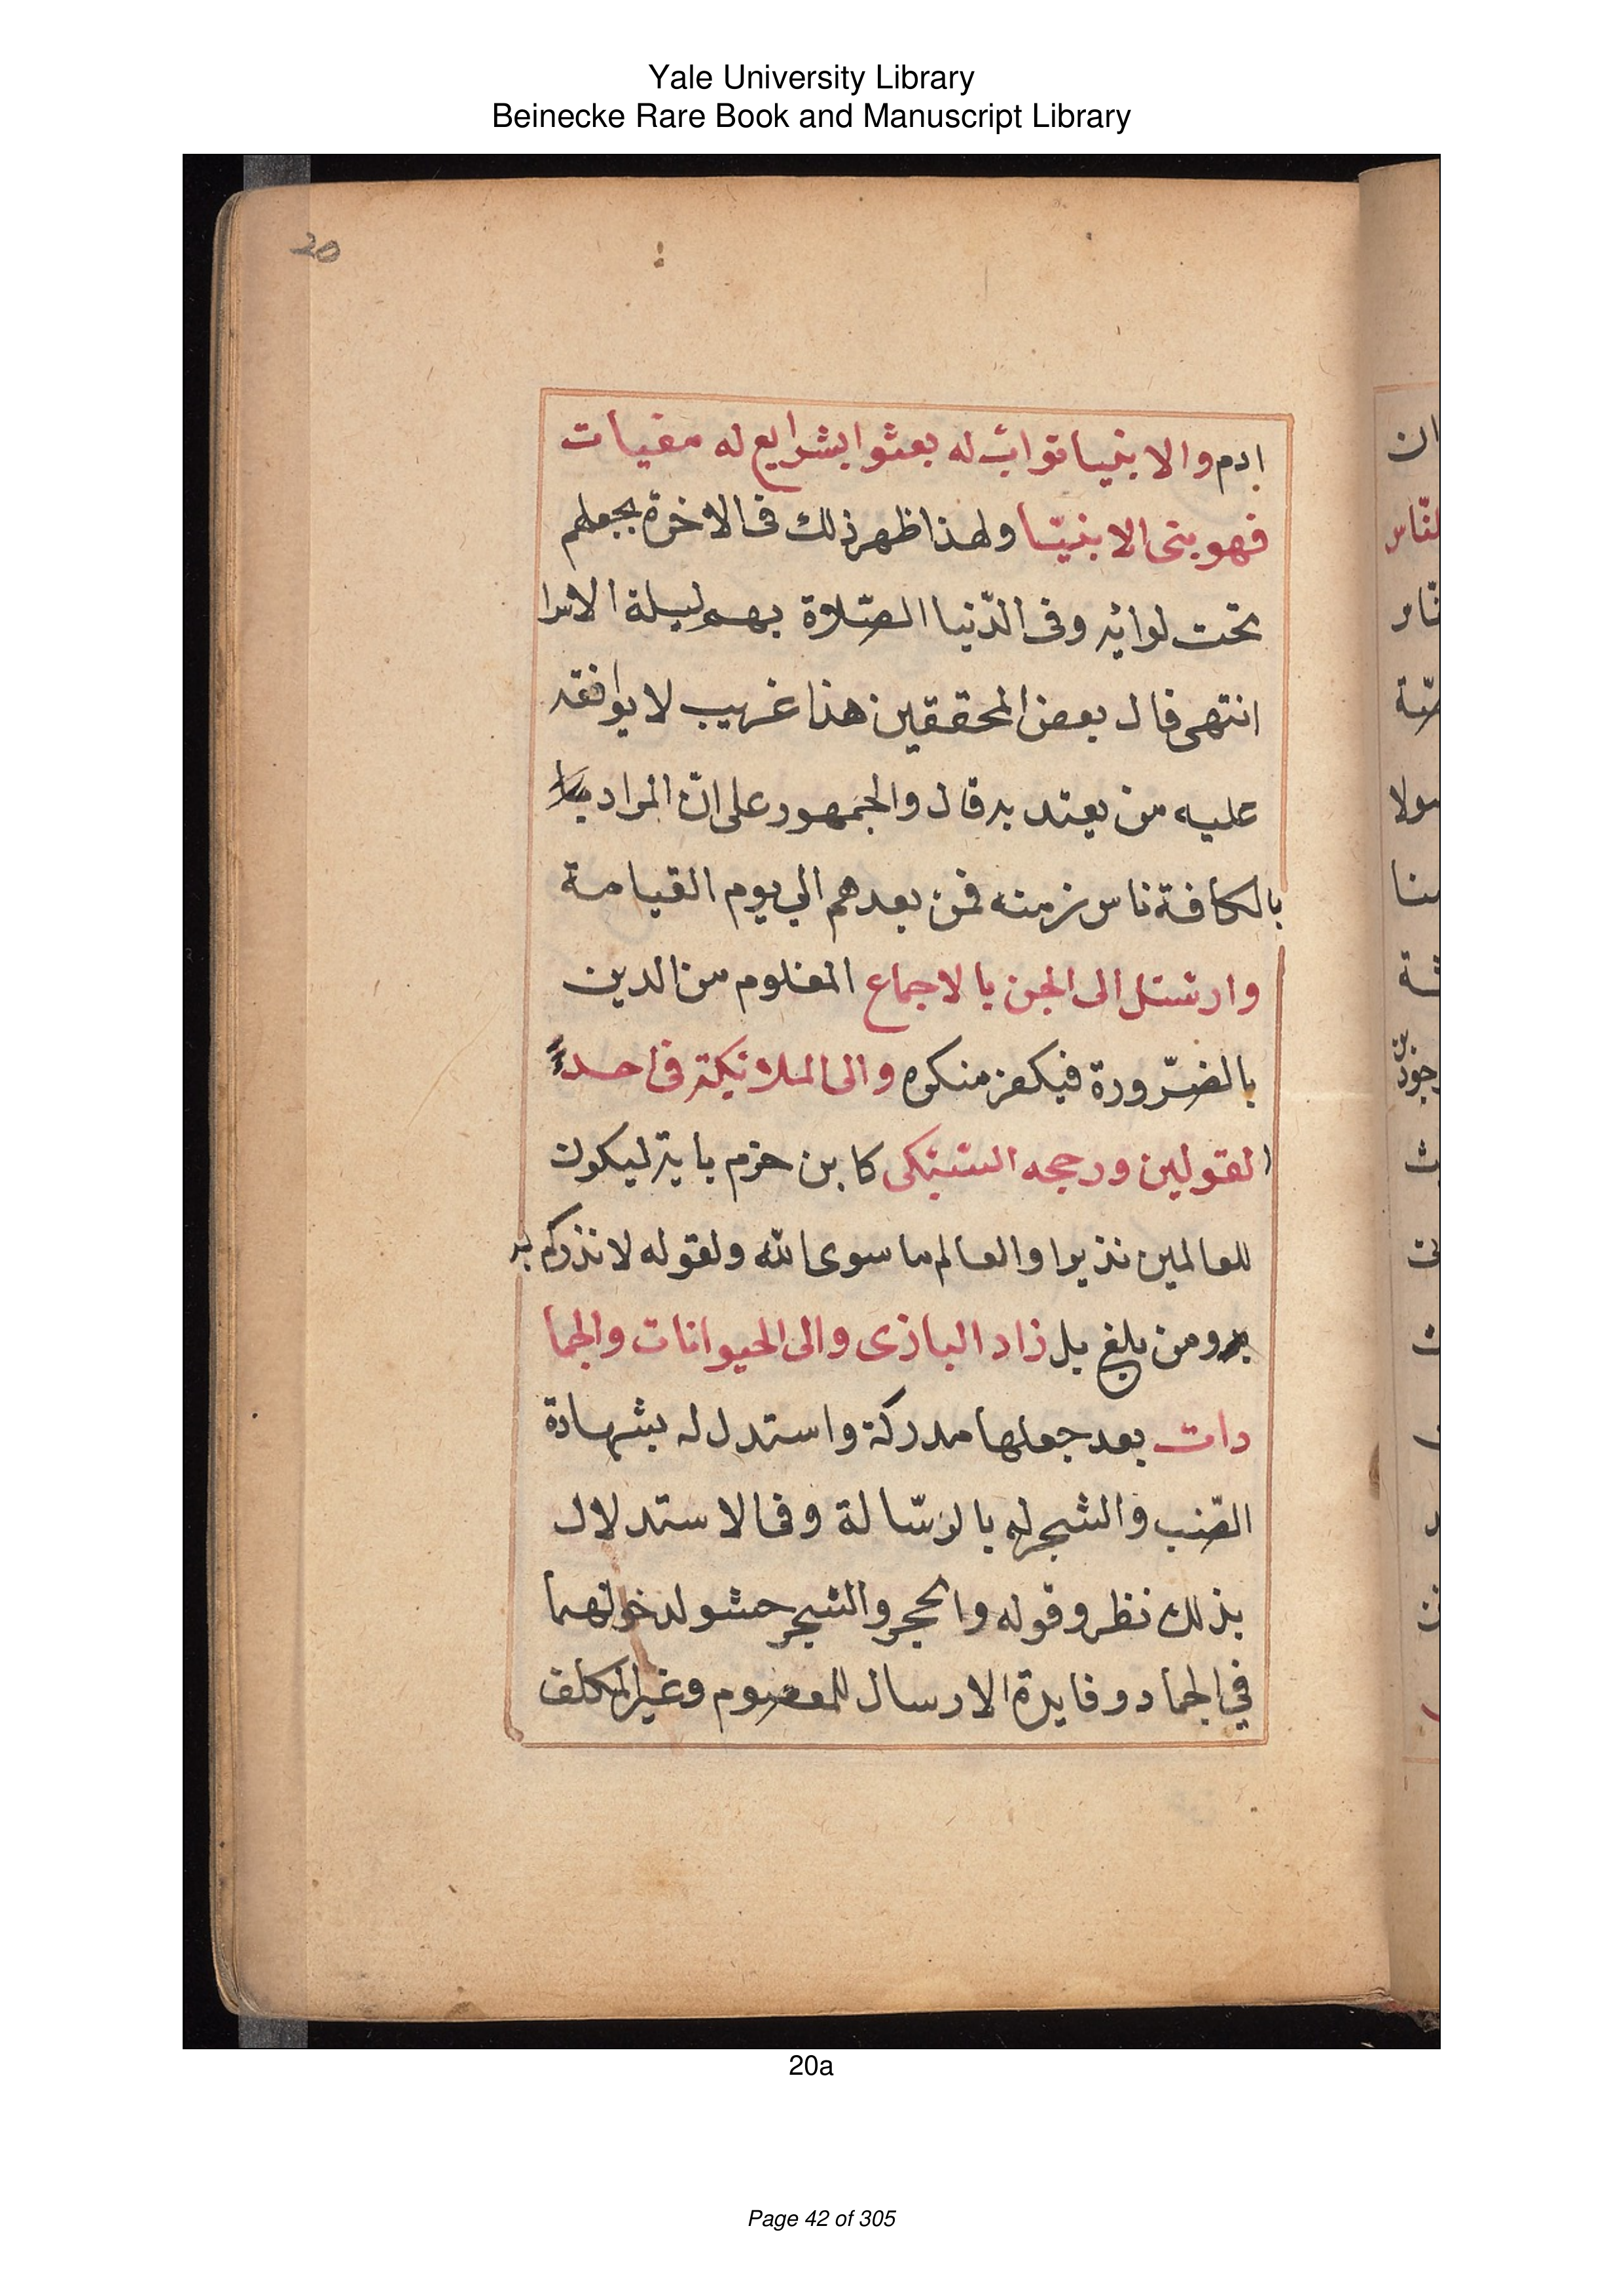 Yale University Library
Beinecke Rare Book and Manuscript Library
20
ادم والانبيا نوابٌ له بعثوا بشرايع له مغيات
فهو بنى الانبيّا ولهذا ظهر ذلك فى الاخرة بجعلهم
تحت لوائه وفى الدّنيا الصّلاة بهم ليلة الاسرا
انتهى قال بعض المحققين هذا غريب لا يوافقه
عليه من يعتد به قال والجمهور على انّ المراد
بالكافة ناس زمنه فمن بعدهم الي يوم القيامة
وارسل الى الجن بالاجماع المعلوم من الدين
بالضّرورة فيكفر منكره والى الملائكة فى احد
القولين ورجحه السّبكى كابن حزم باية ليكون
للعالمين نذيرا والعالم ما سوى الله ولقوله لانذركم به
ومن بلغ بل زاد البازى والى الحيوانات والجما
دات بعد جعلها مدركة واستدل له بشهادة
الضّب والشجر له بالرّسالة وفى الاستدلال
بذلك نظر وقوله والحجر والشجر حشو لدخولهما
في الجماد وفايدة الارسال للمعصوم وغير المكلف
20a
Page 42 of 305